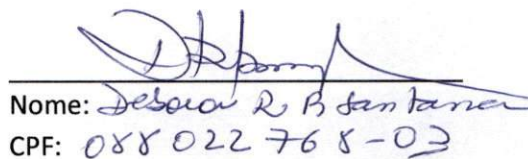 Nome: Debora R B Santana
CPF: 088 022 768-03